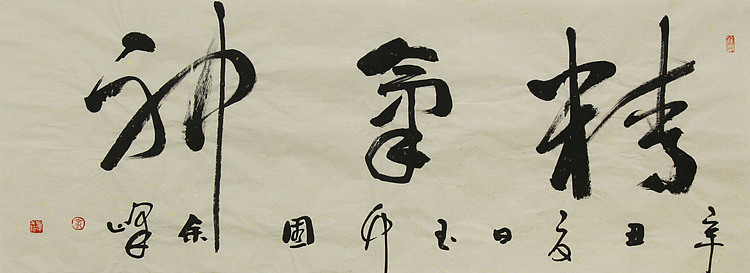 精氣神
辛丑夏日玉余峰